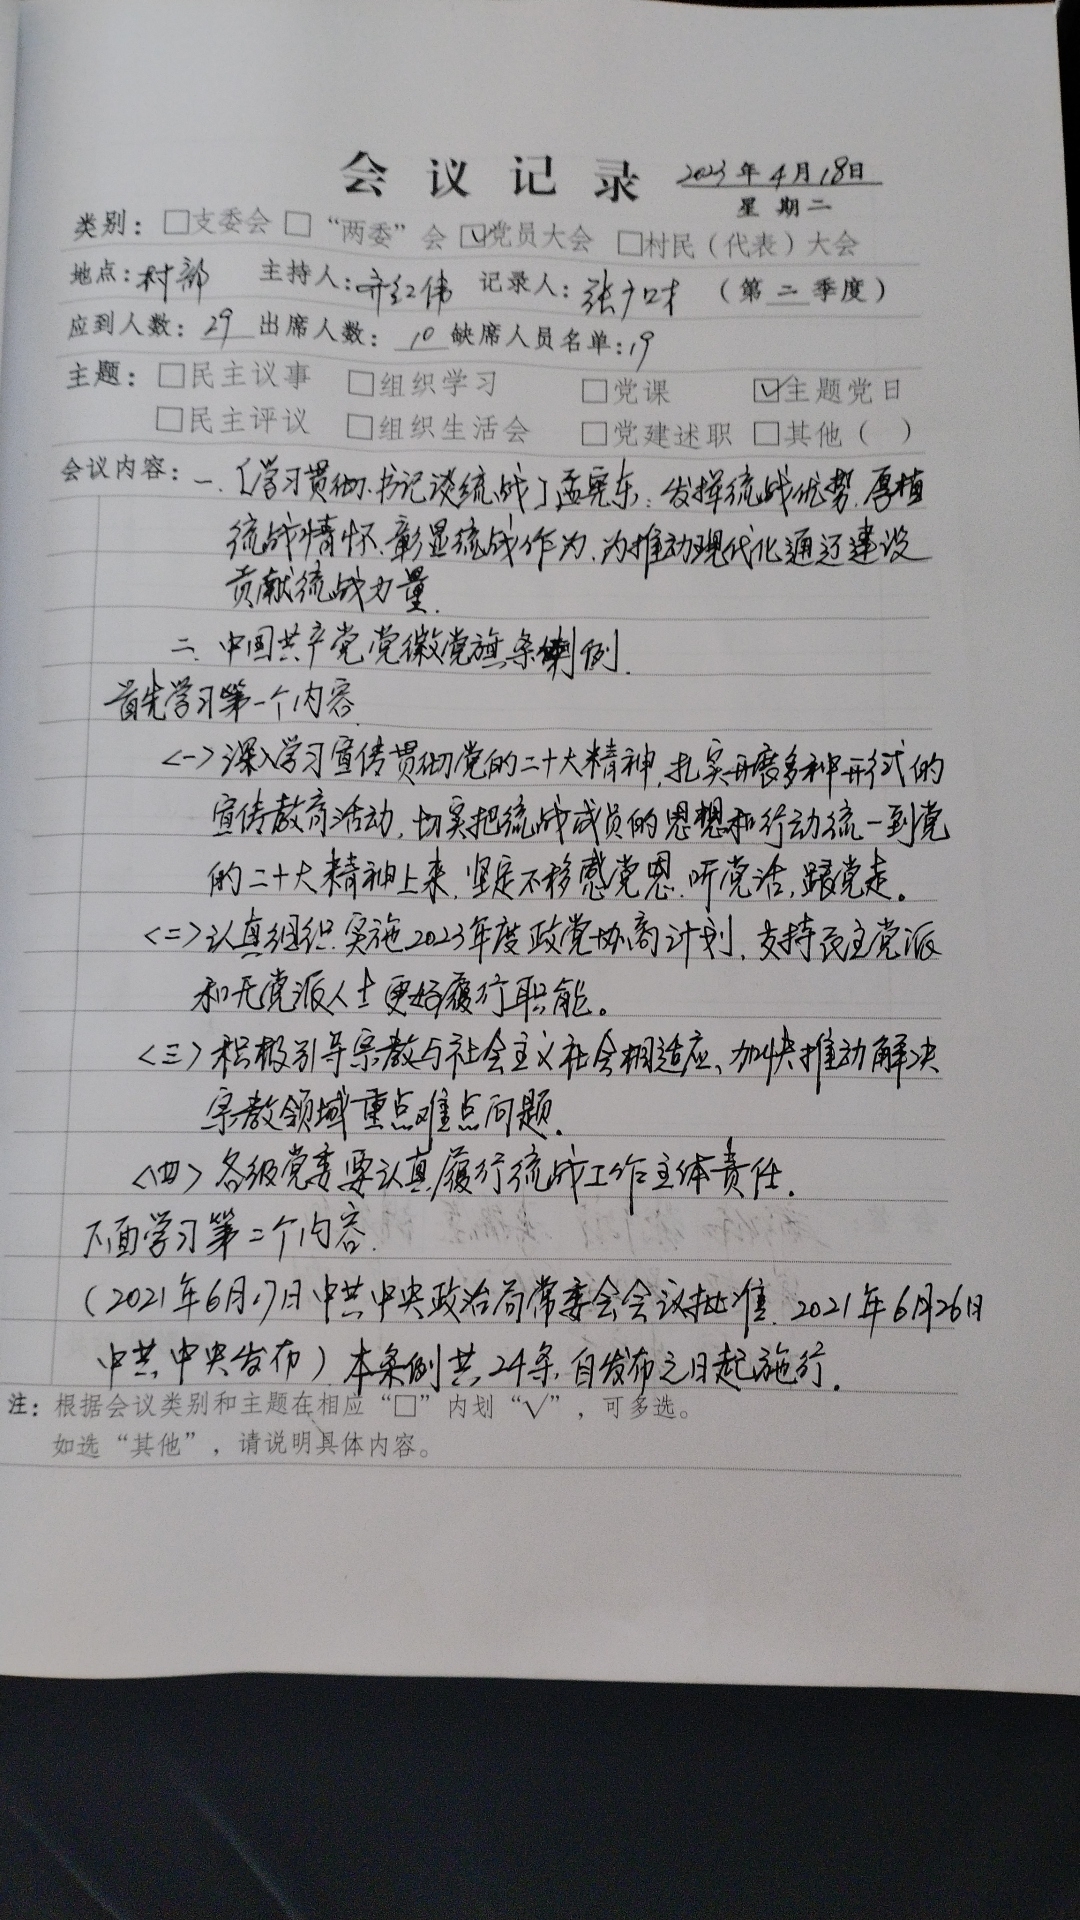 会议记录 2023年4月18日
星期二
类别：□支委会 □“两委”会 ☑党员大会 □村民（代表）大会
地点：村部 主持人：齐红伟 记录人：张广才 （第二季度）
应到人数：29 出席人数：10 缺席人员名单：19
主题：□民主议事 □组织学习 □党课 ☑主题党日
□民主评议 □组织生活会 □党建述职 □其他（ ）
会议内容：一、〔学习贯彻、书记谈统战〕孟宪东：发挥统战优势、厚植
统战情怀、彰显统战作为、为推动现代化通辽建设
贡献统战力量.
二、中国共产党党徽党旗条例.
首先学习第一个内容
<一>深入学习宣传贯彻党的二十大精神，扎实开展多种形式的
宣传教育活动，切实把统战成员的思想和行动统一到党
的二十大精神上来，坚定不移感党恩、听党话，跟党走。
<二>认真组织实施2023年度政党协商计划，支持民主党派
和无党派人士更好履行职能。
<三>积极引导宗教与社会主义社会相适应、加快推动解决
宗教领域重点难点问题.
<四>各级党委要认真履行统战工作主体责任.
下面学习第二个内容.
（2021年6月17日中共中央政治局常委会会议批准 2021年6月26日
中共中央发布）本条例共24条，自发布之日起施行.
注：根据会议类别和主题在相应“□”内划“√”，可多选。
如选“其他”，请说明具体内容。